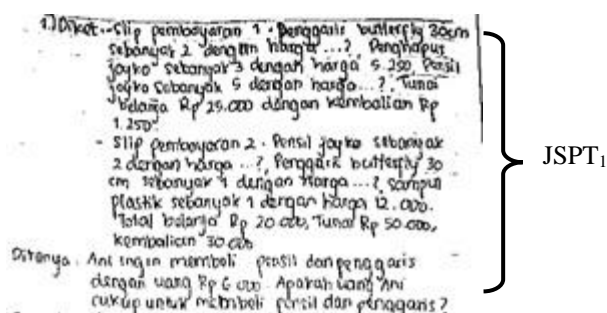 1.) Diket :- Slip pembayaran 1. Penggaris butterfly 30cm
sebanyak 2 dengan harga ...?, Penghapus
joyko sebanyak 3 dengan harga 5.250, Pensil
joyko sebanyak 5 dengan harga ...?, Tunai
belanja Rp 25.000 dengan kembalian Rp
1.250.
- Slip pembayaran 2. Pensil joyko sebanyak
2 dengan harga ...?, Penggaris butterfly 30
cm sebanyak 1 dengan harga ...?, sampul
plastik sebanyak 1 dengan harga 12.000.
Total belanja Rp 20.000, Tunai Rp 50.000,
kembalian 30.000
Ditanya : Ani ingin membeli pensil dan penggaris
dengan uang Rp 6.000. Apakah uang Ani
cukup untuk membeli pensil dan penggaris?
JSPT₁